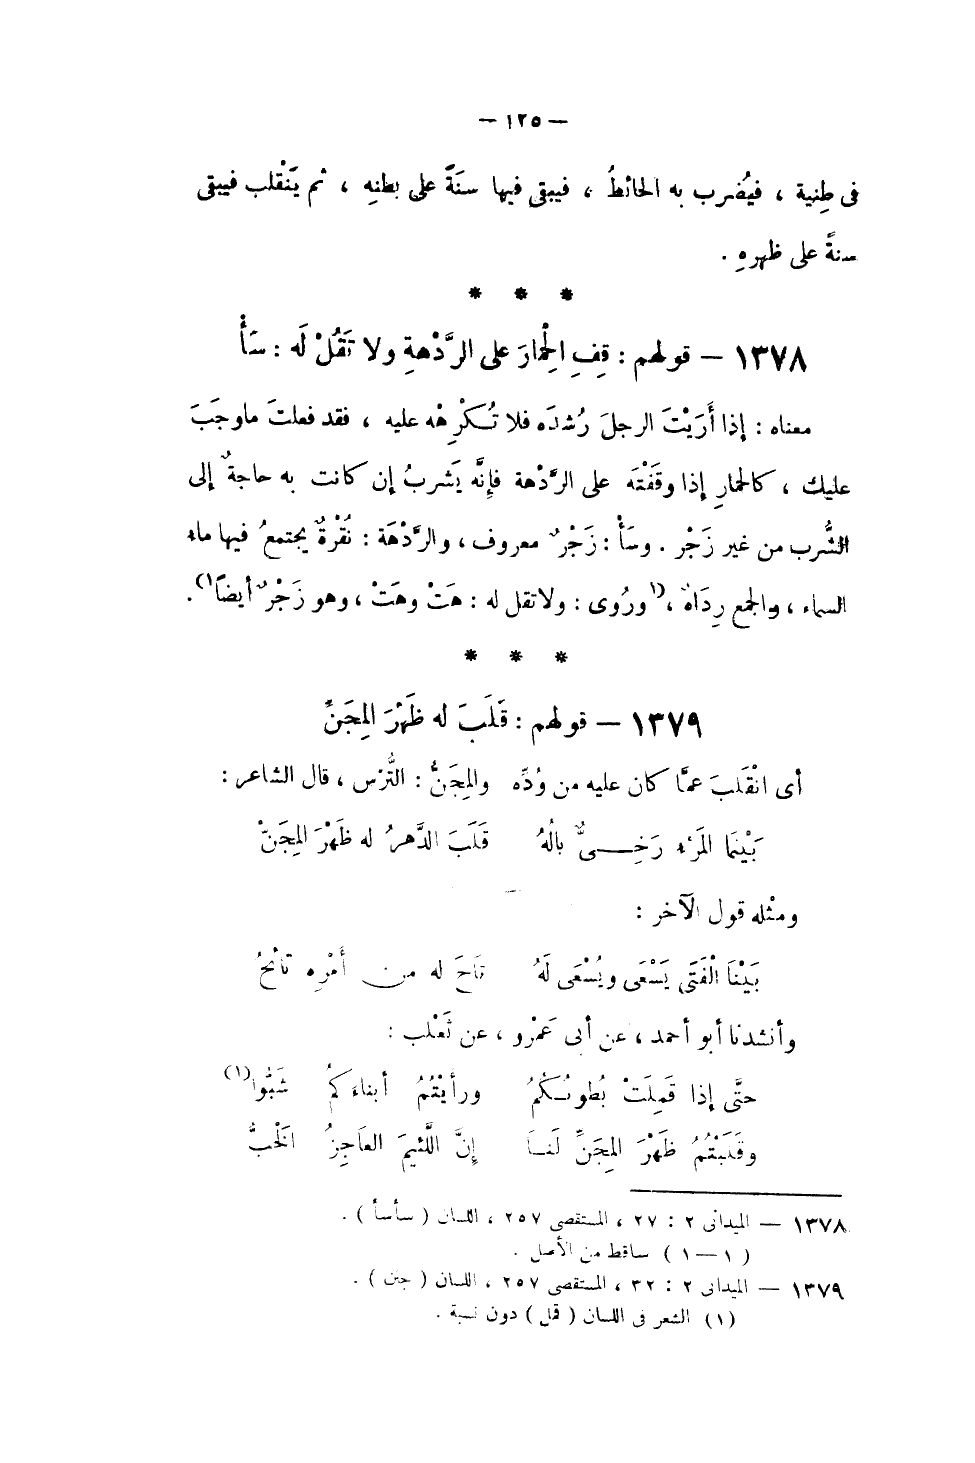 — ١٢٥ —
فى طِنية ، فيُضرب به الحائطُ ، فيبقى فيها سنَةً على بطنِه ، ثم يَنْقلب فيبقى
سنةً على ظهرهِ .
* * *
١٣٧٨ — قولهم : قِفِ الِحْمَارَ على الرَّدْهةِ ولا تَقُلْ لَه : سَأْ
معناه : إذا أَرَيْتَ الرجلَ رُشدَه فلا تُكْرِهْه عليه ، فقد فعلتَ ماوجَبَ
عليك ، كالحمارِ إذا وقَفْتَه على الرَّدْهة فإِنَّه يَشربُ إن كانت به حاجةٌ إلى
الشُّرب من غير زَجْر . وسَأْ : زَجْرٌ معروف ، والرَّدْهَة : نُقْرةٌ يجتمعُ فيها ماء
السماء ، والجمع رِدَاهٌ ، (١ ورُوى : ولاتقل له : هَتْ وهَتْ ، وهو زَجْرٌ أيضاً ١) .
* * *
١٣٧٩ — قولهم : قَلَبَ له ظَهْرَ المِجَنِّ
أى انْقَلبَ عمَّا كان عليه من وُدِّه والمِجَنُّ : التُّرْس ، قال الشاعر :
بَيْنَما المَرْء رَخِـىٌّ بالُهُ قَلَبَ الدَّهرُ له ظَهْرَ المِجَنّْ
ومثْله قول الآخر :
بَيْنَا الْفَتَى يَسْعَى ويُسْعَى لَهُ تَاحَ له من أَمْرِه تائحُ
وأنشدنا أبو أحمد ، عن أبى عَمْرو ، عن ثَعْلب :
حتَّى إذا قَمِلَتْ بُطونُـكُمُ ورأَيْتُمُ أبناءَكمُ شَبُّوا (١)
وقَلَبْتُمُ ظَهْرَ المِجَنِّ لَنـا إِنَّ اللَّئيمَ العَاجِزُ الَخْبُّ
١٣٧٨ — الميدانى ٢ : ٢٧ ، المستقصى ٢٥٧ ، اللسان ( سأسأ ) .
( ١ — ١ ) ساقط من الأصل .
١٣٧٩ — الميدانى ٢ : ٣٢ ، المستقصى ٢٥٧ ، اللسان ( جنن ) .
(١) الشعر فى اللسان ( قمل ) دون نسبة .